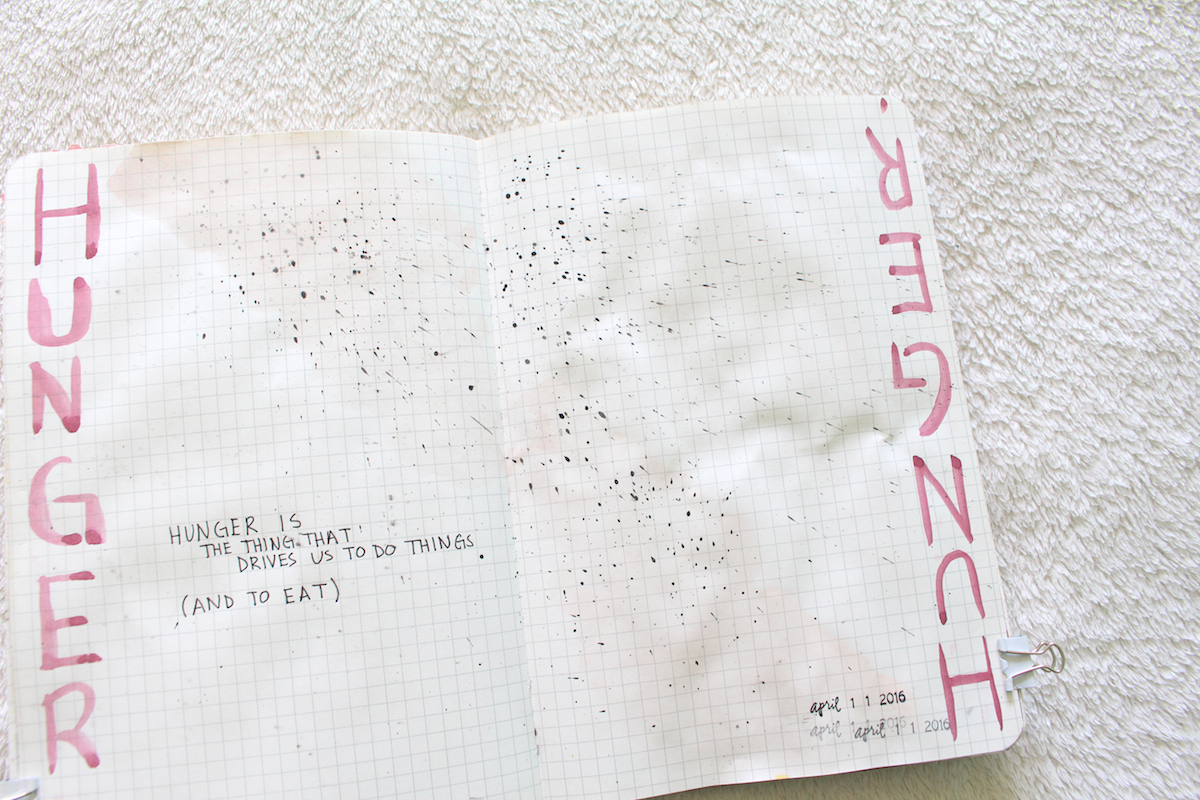 HUNGER
HUNGER IS
THE THING THAT
DRIVES US TO DO THINGS.
(AND TO EAT)
HUNGER.
april 1 1 2016
april 1 1 2016
april 1 1 2016